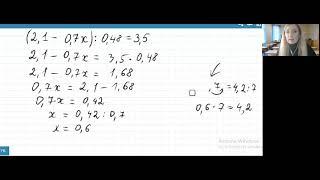 (2,1 − 0,7x) : 0,48 = 3,5
2,1 − 0,7x = 3,5 · 0,48
2,1 − 0,7x = 1,68
0,7x = 2,1 − 1,68
0,7·x = 0,42
x = 0,42 : 0,7
x = 0,6
,7 = 4,2 : 7
0,6 · 7 = 4,2